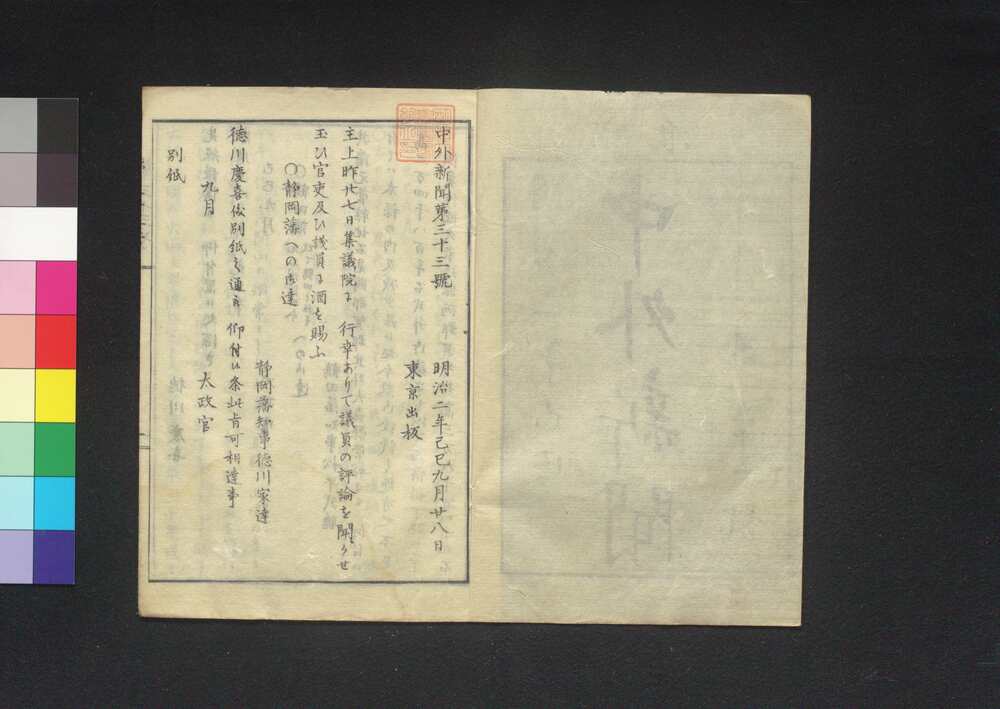 中外新聞第三十三號
明治二年己巳九月廿八日
東京出板
主上昨廿七日集議院に 行幸ありて議員の評論を聞かせ
玉ひ官吏及ひ議員に酒を賜ふ
〇静岡藩への御達
静岡藩知事徳川家達
徳川慶喜儀別紙之通被 仰付候条此旨可相達事
九月 太政官
別紙